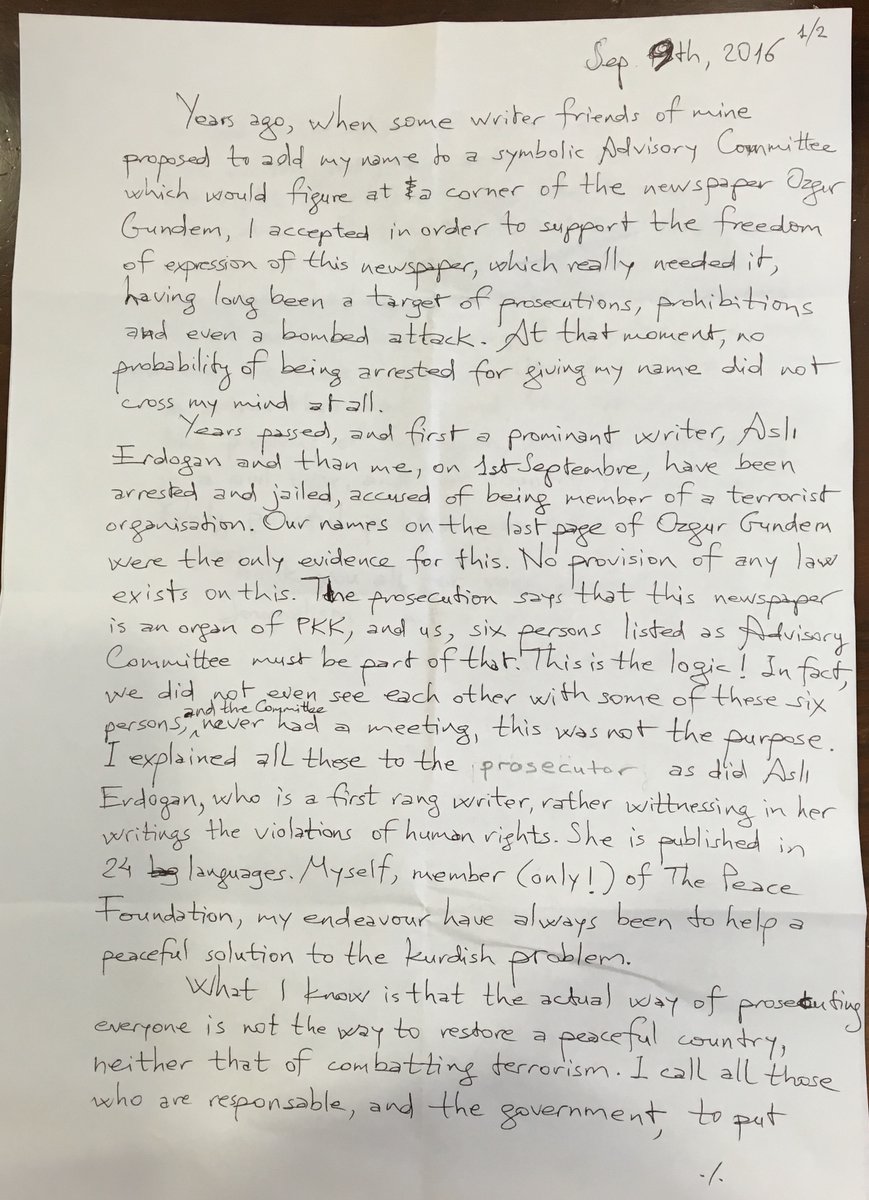 1/2
Sep 9th, 2016
Years ago, when some writer friends of mine
proposed to add my name to a symbolic Advisory Committee
which would figure at a corner of the newspaper Ozgur
Gundem, I accepted in order to support the freedom
of expression of this newspaper, which really needed it,
having long been a target of prosecutions, prohibitions
and even a bombed attack. At that moment, no
probability of being arrested for giving my name did not
cross my mind at all.
Years passed, and first a prominant writer, Aslı
Erdogan and than me, on 1st Septembre, have been
arrested and jailed, accused of being member of a terrorist
organisation. Our names on the last page of Ozgur Gundem
were the only evidence for this. No provision of any law
exists on this. The prosecution says that this newspaper
is an organ of PKK, and us, six persons listed as Advisory
Committee must be part of that. This is the logic! In fact,
we did not even see each other with some of these six
persons, and the Committee never had a meeting, this was not the purpose.
I explained all these to the prosecutor as did Aslı
Erdogan, who is a first rang writer, rather wittnessing in her
writings the violations of human rights. She is published in
24 languages. Myself, member (only!) of The Peace
Foundation, my endeavour have always been to help a
peaceful solution to the kurdish problem.
What I know is that the actual way of prosecuting
everyone is not the way to restore a peaceful country,
neither that of combatting terrorism. I call all those
who are responsable, and the government, to put
./.